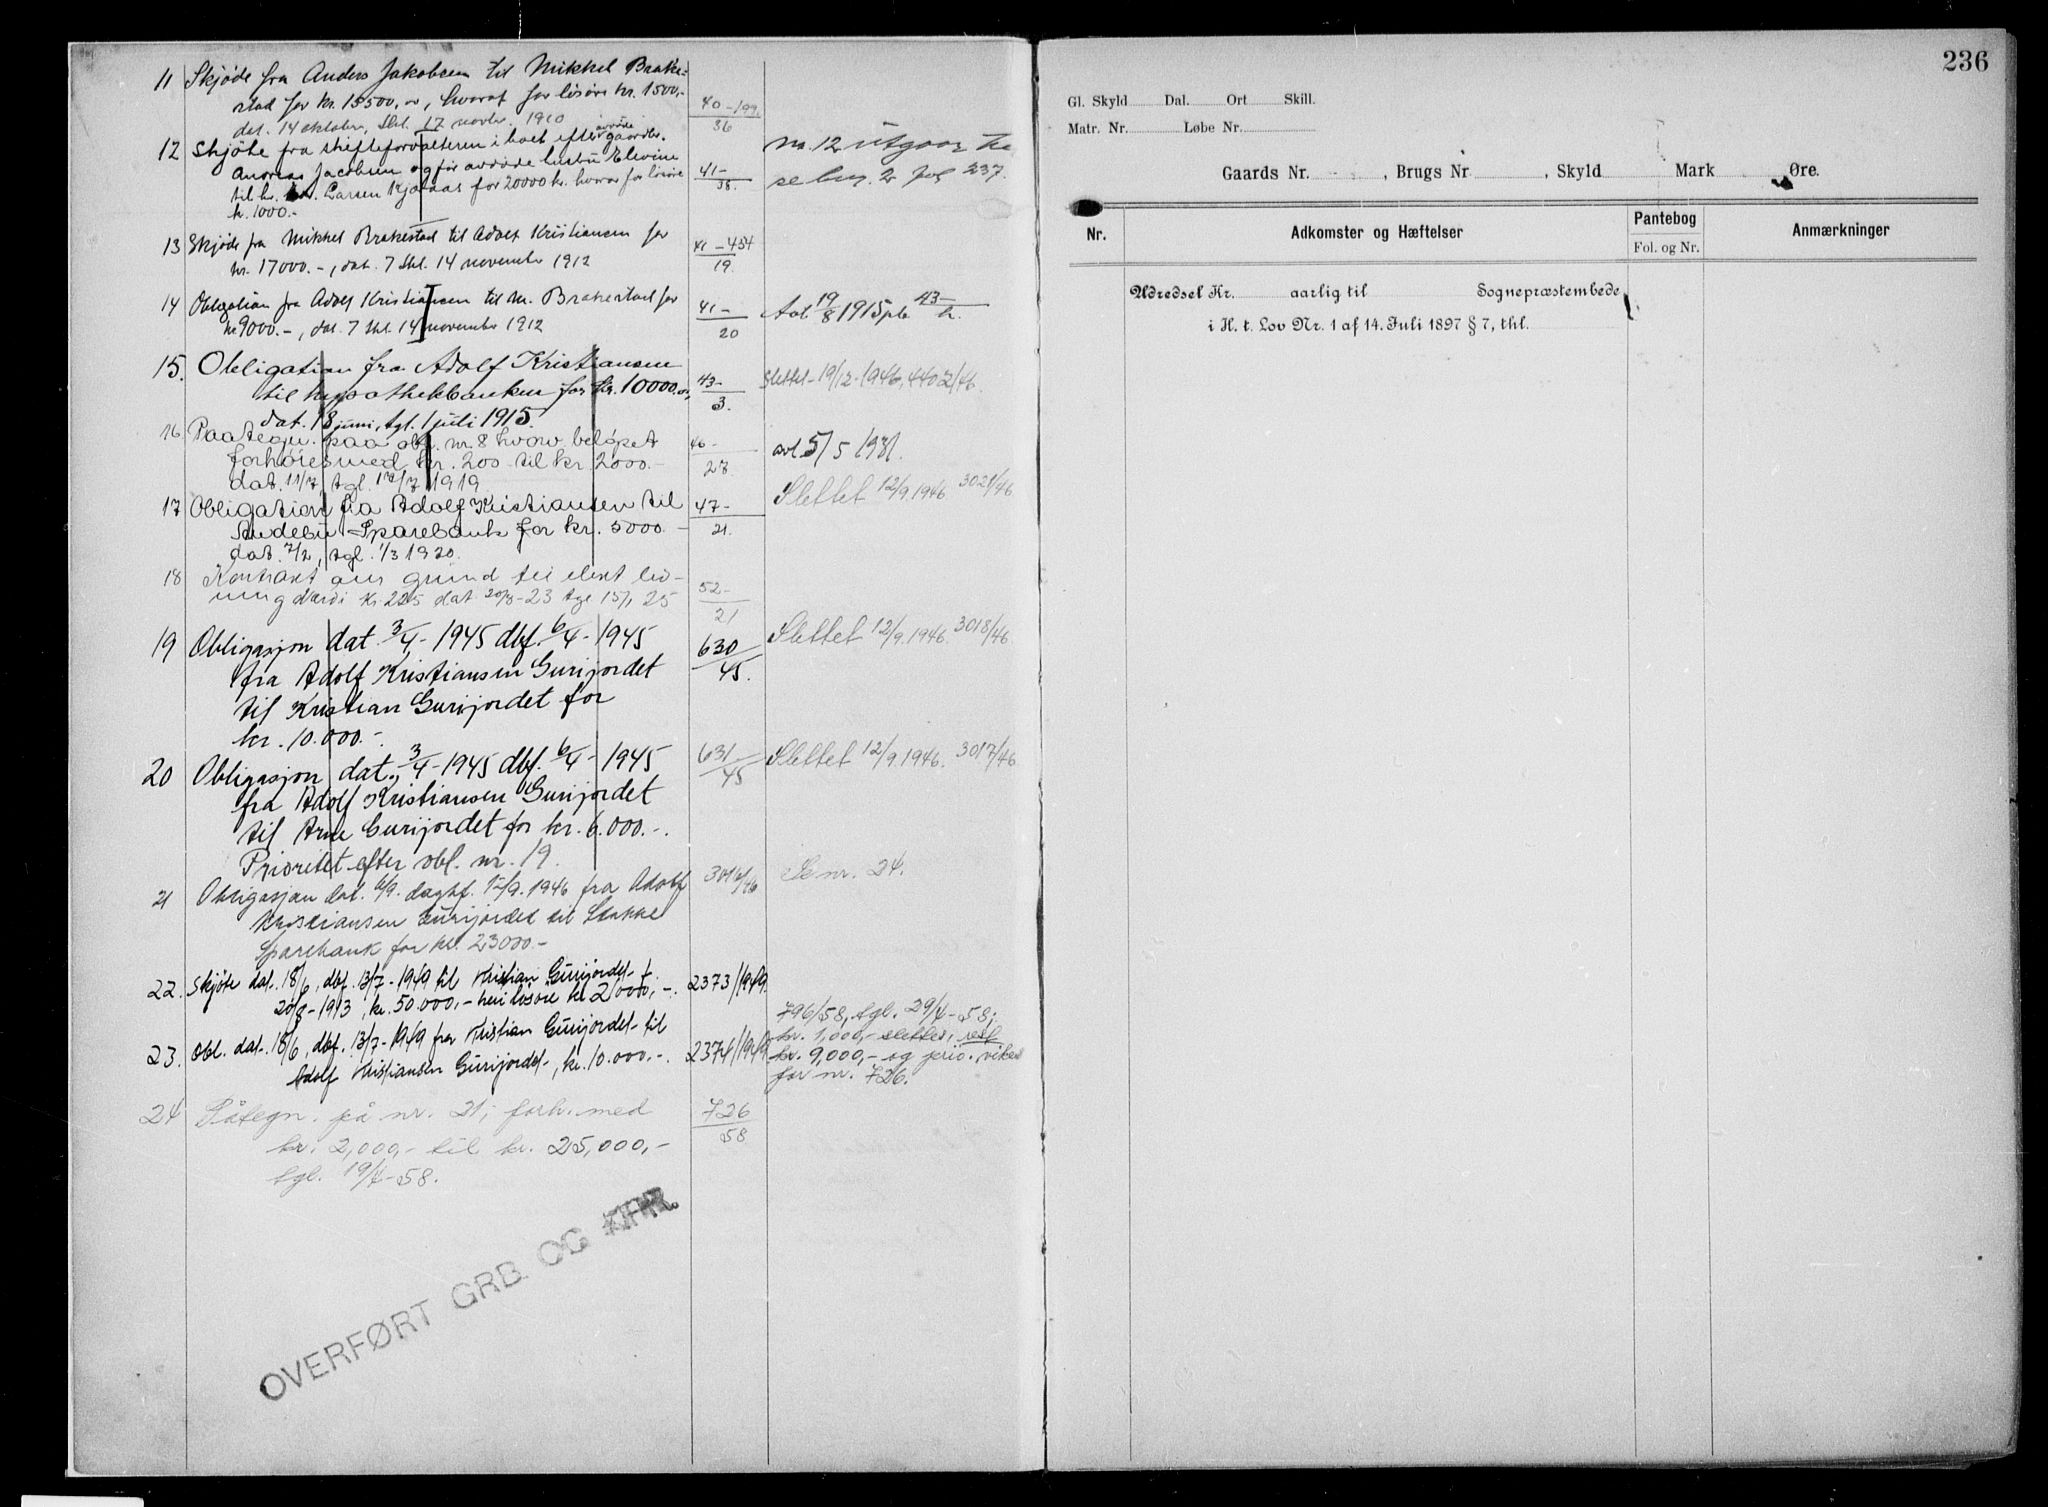 11 Skjøde fra Anders Jakobsen til Mikkel Brake-
stad for kr. 15500,00, hvoraf for løsøre kr. 1500,-
dat. 14 oktober, thl. 17 novbr. 1910
40-199.
36
12 Skjøte fra skifteforvalteren i boet efter avdøde gaardbr.
Andreas Jacobsen og før avdøde hustru Elevine
til hr. Larsen for 20000 kr. hvorav for løsøre
kr. 1000.-
41-
38.
nr. 12 utgaar
se brn. 2 fol 237.
13 Skjøde fra Mikkel Brakestad til Adolf Kristiansen for
kr. 17000.-, dat. 7 thl. 14 november 1912
41-454
19.
14 Obligation fra Adolf Kristiansen til M. Brakestad for
kr 9000.-, dat. 7 thl. 14 november 1912
41-
20
Avl 19/8 1915 pb 43-
15. Obligation fra Adolf Kristiansen
til hypothekbanken for kr. 10000.00,
dat. 18 juni, tgl. 1 juli 1915.
43-
3.
Slettet 19/12-1946, 4402/46.
16 Paategn. paa obl. nr. 8 hvorv. beløpet
forhøies med kr. 200 til kr. 2000.-
dat. 11/7, tgl. 17/7 1919
46-
27
avl 5/5 1931.
17 Obligation fra Adolf Kristiansen til
Andebu Sparebank for kr. 5000.-
dat. 7/2, tgl. 1/3 1920.
47-
21.
Slettet 12/9.1946. 3021/46
18 Kontrakt om grund til elekt led-
ning Værdi kr 225 dat 20/8-23 tgl 15/1 25
52-
21
19 Obligasjon dat. 3/4-1945 dbf. 6/4-1945
fra Adolf Kristiansen Gurijordet
til Kristian Gurijordet for
kr. 10.000.-
630
45.
Slettet 12/9.1946. 3018/46.
20 Obligasjon dat. 3/4-1945 dbf. 6/4-1945
fra Adolf Kristiansen Gurijordet
til Arne Gurijordet for kr. 6.000.-.
Prioritet efter obl. nr. 19.
631
45
Slettet 12/9.1946. 3017/46
21 Obligasjon dat. 6/9. dagbf. 12/9.1946 fra Adolf
Kristiansen Gurijordet til Stokke
Sparebank for kr. 23000.-
3016/46
Se nr. 24.
22. Skjøte dat. 18/6, dbf. 13/7-1949 til Kristian Gurijordet f.
20/8-1913, kr. 50.000,- heri løsøre kr 2000,-.
2373/1949.
23. Obl. dat. 18/6, dbf. 13/7-1949 fra Kristian Gurijordet til
Adolf Kristiansen Gurijordet, kr. 10.000.-.
2374/1949
796/58, tgl. 29/4-58;
kr. 1,000,- slettes, rest
kr. 9,000,- og prio. viker
for nr. 726.
24 Påtegn. på nr. 21; forh. med
kr. 2,000,- til kr. 25,000,-
tgl. 19/4-58.
726
58
OVERFØRT GRB. OG
236
Gl. Skyld Dal. Ort Skill.
Matr. Nr. Løbe Nr.
Gaards Nr. , Brugs Nr. , Skyld Mark Øre.
Nr. Adkomster og Hæftelser Pantebog Anmærkninger
Fol. og Nr.
Udredsel Kr. aarlig til Sognepræstembede
i H. t. Lov Nr. 1 af 14. Juli 1897 § 7, thl.